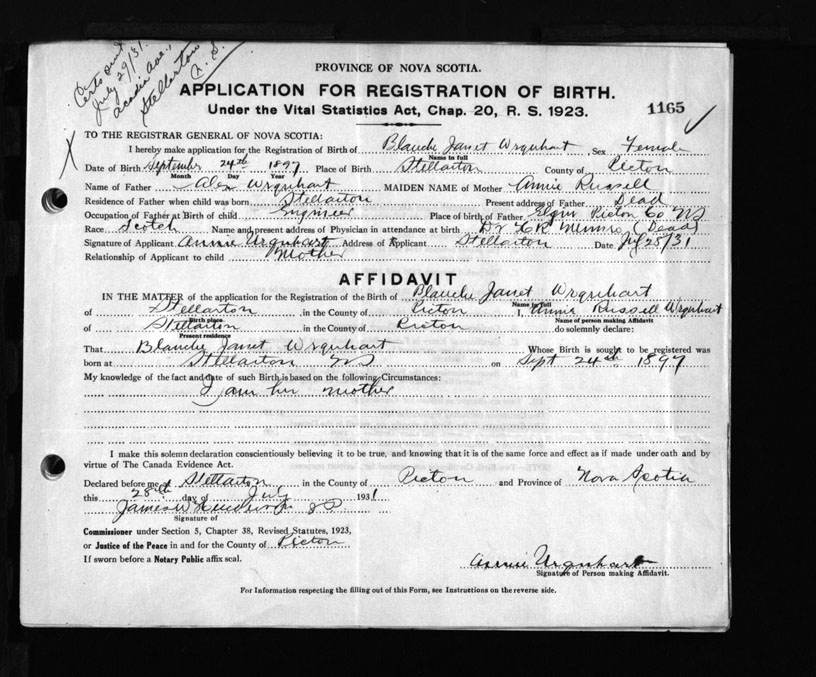 Certs sent
July 29/31.
Acadia Ave.,
Stellarton
N. S.
PROVINCE OF NOVA SCOTIA.
APPLICATION FOR REGISTRATION OF BIRTH.
Under the Vital Statistics Act, Chap. 20, R. S. 1923.
1165
TO THE REGISTRAR GENERAL OF NOVA SCOTIA:
I hereby make application for the Registration of Birth of Blanche Janet Urquhart Sex Female
Name in full
Date of Birth September 24th 1897 Place of Birth Stellarton County of Pictou
Month Day Year
Name of Father Alex Urquhart MAIDEN NAME of Mother Annie Russell
Residence of Father when child was born Stellarton Present address of Father Dead
Occupation of Father at Birth of child Engineer Place of birth of Father Elgin Pictou Co NS
Race Scotch Name and present address of Physician in attendance at birth Dr Munro (Dead)
Signature of Applicant Annie Urquhart Address of Applicant Stellarton Date July 25/31
Relationship of Applicant to child Mother
AFFIDAVIT
IN THE MATTER of the application for the Registration of the Birth of Blanche Janet Urquhart
Name in full
of Stellarton in the County of Pictou I, Annie Russell Urquhart
Birth place Name of person making Affidavit
of Stellarton in the County of Pictou do solemnly declare:
Present residence
That Blanche Janet Urquhart Whose Birth is sought to be registered was
born at Stellarton NS on Sept 24th 1897
My knowledge of the fact and date of such Birth is based on the following Circumstances:
I am her mother
I make this solemn declaration conscientiously believing it to be true, and knowing that it is of the same force and effect as if made under oath and by
virtue of The Canada Evidence Act.
Declared before me at Stellarton in the County of Pictou and Province of Nova Scotia
this 28th day of July 1931
James W Henderson JP
Signature of
Commissioner under Section 5, Chapter 38, Revised Statutes, 1923,
or Justice of the Peace in and for the County of Pictou
If sworn before a Notary Public affix seal.
Annie Urquhart
Signature of Person making Affidavit.
For Information respecting the filling out of this Form, see Instructions on the reverse side.